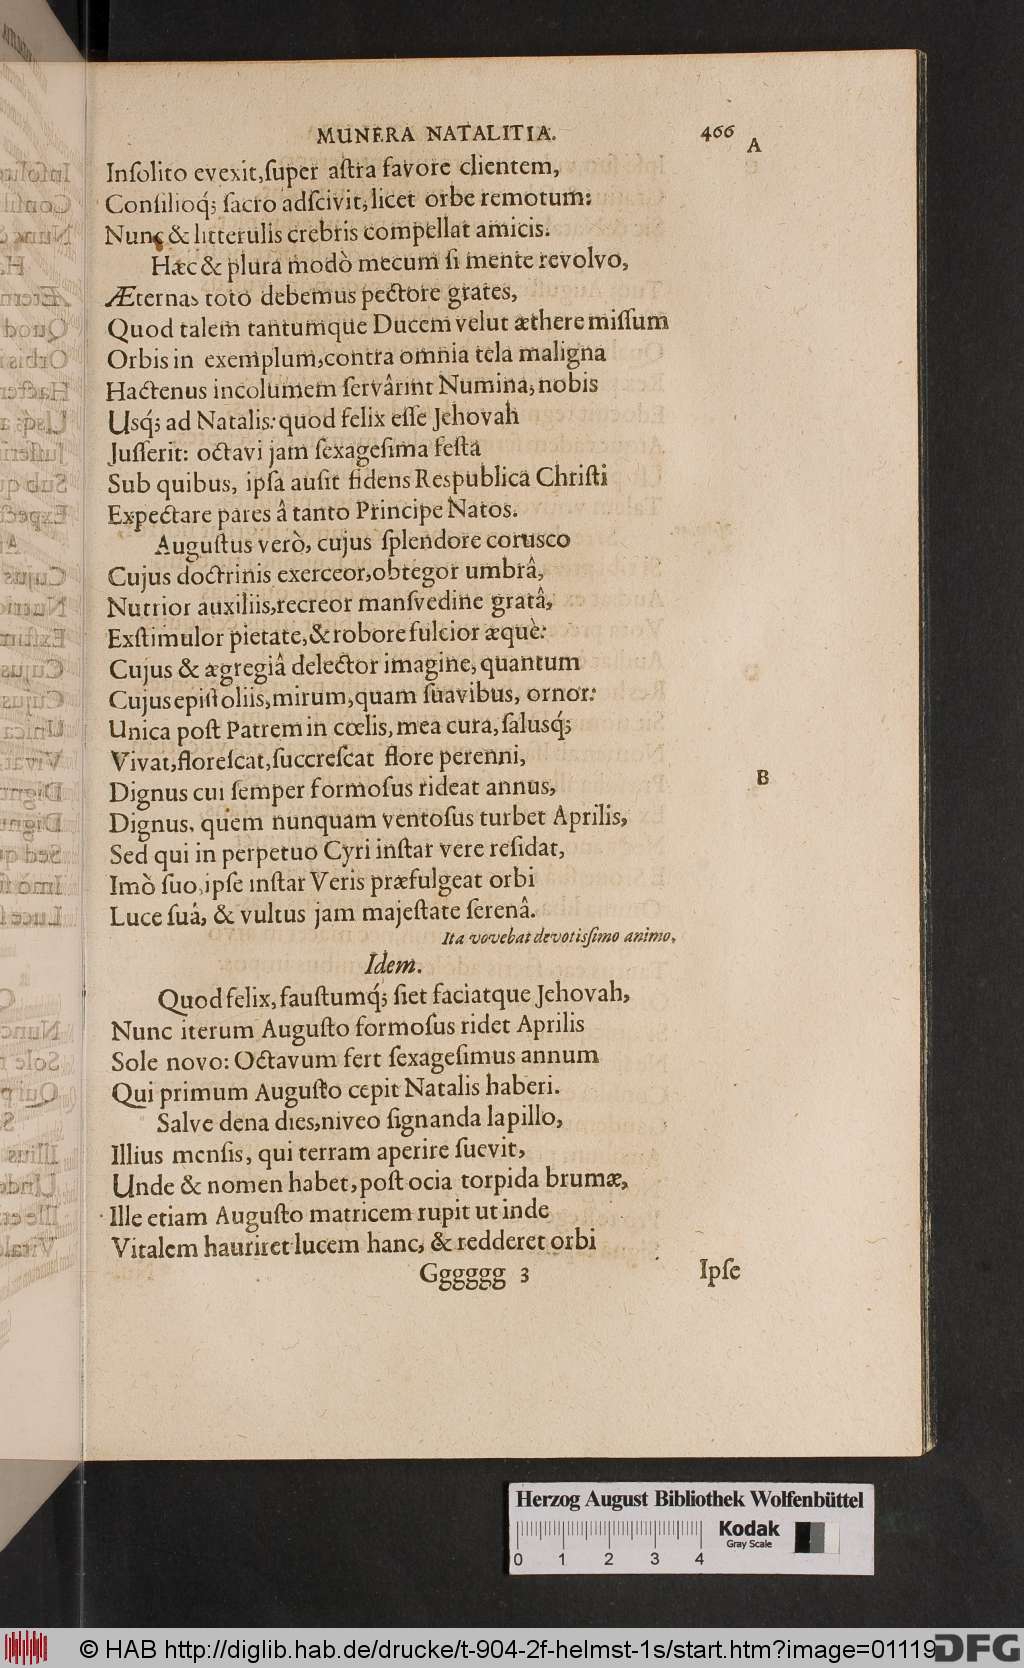 MUNERA NATALITIA. 466
A
Inſolito evexit, ſuper aſtra favore clientem,
Conſilioq́; ſacro adſcivit, licet orbe remotum:
Nunc & litterulis crebris compellat amicis.
Hæc & plura modò mecum ſi mente revolvo,
Æternas toto debemus pectore grates,
Quod talem tantumque Ducem velut æthere miſſum
Orbis in exemplum, contra omnia tela maligna
Hactenus incolumem ſervârint Numina, nobis
Usq́; ad Natalis: quod felix eſſe Jehovah
Juſſerit: octavi jam ſexageſima feſta
Sub quibus, ipſa auſit fidens Respublica Chriſti
Expectare pares â tanto Principe Natos.
Auguſtus verò, cujus ſplendore corusco
Cujus doctrinis exerceor, obtegor umbrâ,
Nutrior auxiliis, recreor manſvedine gratâ,
Exſtimulor pietate, & robore fulcior æquè:
Cujus & ægregiâ delector imagine, quantum
Cujus epiſtoliis, mirum, quam ſuavibus, ornor:
Unica poſt Patrem in cœlis, mea cura, ſalusq́;
Vivat, floreſcat, ſuccreſcat flore perenni,
B
Dignus cui ſemper formoſus rideat annus,
Dignus, quem nunquam ventoſus turbet Aprilis,
Sed qui in perpetuo Cyri inſtar vere reſidat,
Imò ſuo, ipſe inſtar Veris præfulgeat orbi
Luce ſuâ, & vultus jam majeſtate ſerenâ.
Ita vovebat devotisſimo animo,
Idem.
Quod felix, fauſtumq́; ſiet faciatque Jehovah,
Nunc iterum Auguſto formoſus ridet Aprilis
Sole novo: Octavum fert ſexageſimus annum
Qui primum Auguſto cepit Natalis haberi.
Salve dena dies, niveo ſignanda lapillo,
Illius menſis, qui terram aperire ſuevit,
Unde & nomen habet, poſt ocia torpida brumæ,
Ille etiam Auguſto matricem rupit ut inde
Vitalem hauriret lucem hanc, & redderet orbi
Gggggg 3 Ipſe
Herzog August Bibliothek Wolfenbüttel
Kodak
Gray Scale
0 1 2 3 4
© HAB http://diglib.hab.de/drucke/t-904-2f-helmst-1s/start.htm?image=01119
DFG